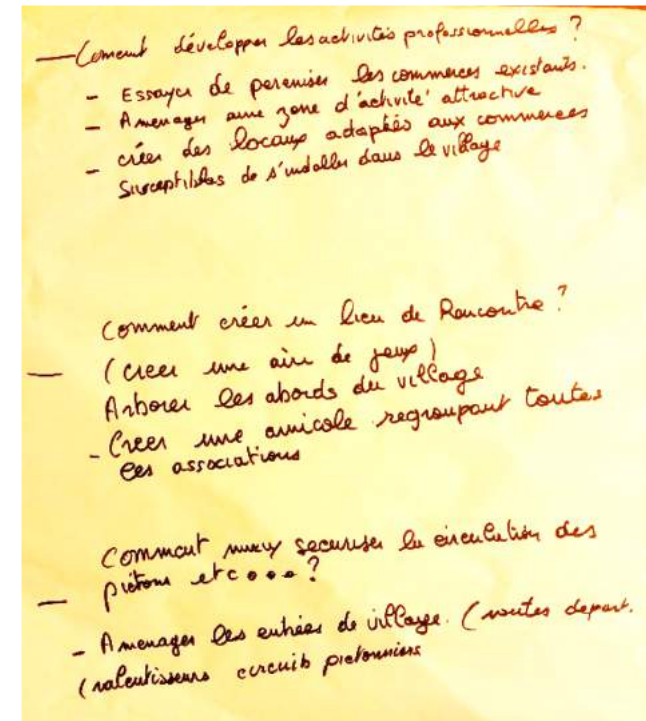 — Coment développer les activités professionnelles ?
- Essayer de pereniser les commerces existants.
- Amenager une zone d'activité attractive
- créer des locaux adaptés aux commerces
Susceptibles de s'installer dans le village
Comment créer un lieu de Rencontre ?
— (creer une aire de jeux)
Arborer les abords du village
- Creer une amicole regroupant toutes
les associations
Comment mieux securiser la circulation des
— piétons etc... ?
- Amenager les entrées de village. (routes depart.
(ralentisseurs circuits pietonniers